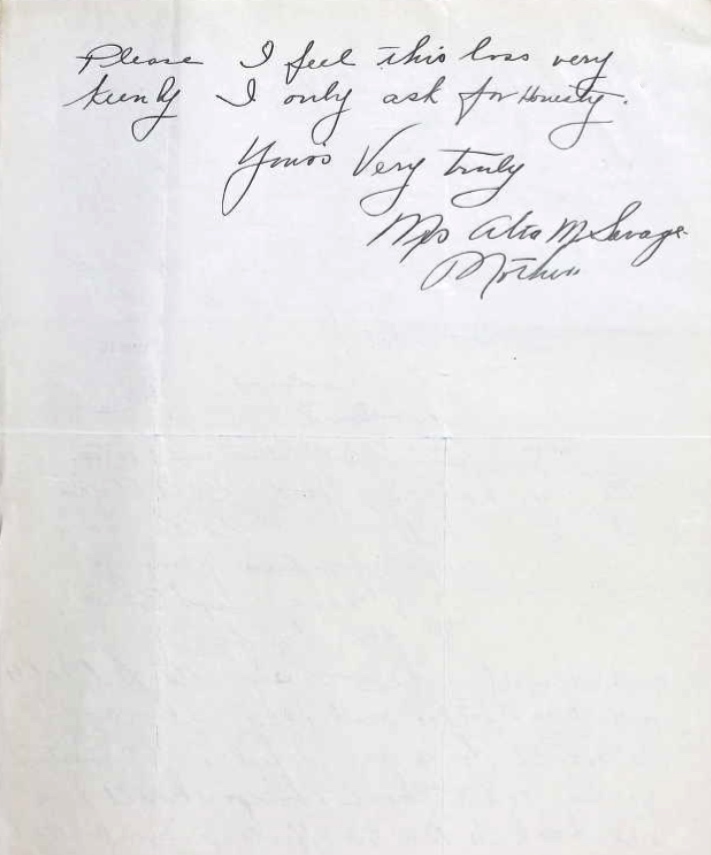 Please I feel this loss very
keenly I only ask for Honesty.
Yours Very truly
Mrs Alta M Savage
Mother